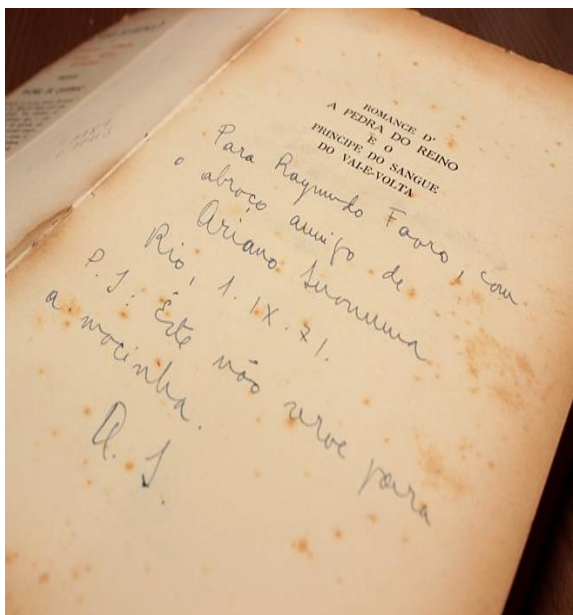 ROMANCE D'
A PEDRA DO REINO
E O
PRÍNCIPE DO SANGUE
DO VAI-E-VOLTA
Para Raymundo Faoro, com
o abraço amigo de
Ariano Suassuna
Rio, 1. IX. 71.
P. S: Êste não serve para
a mocinha.
A. S.